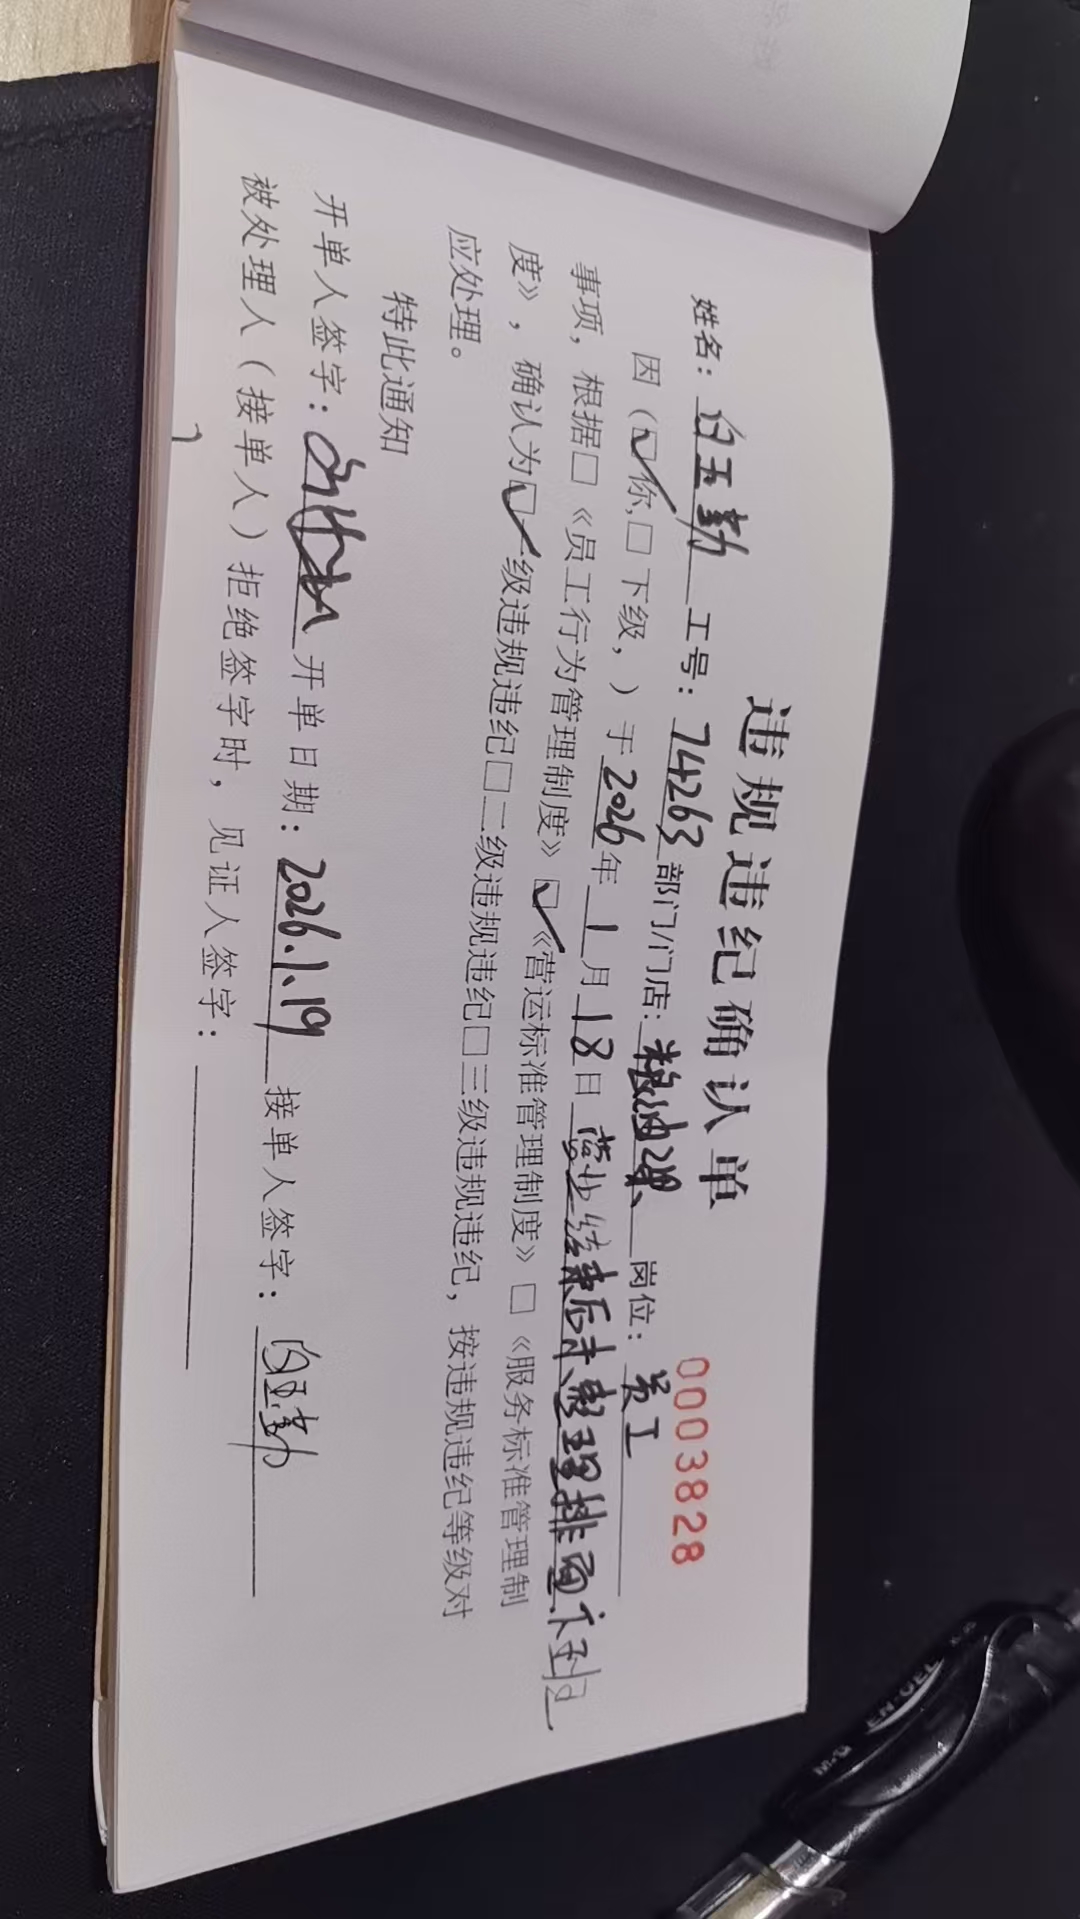 违规违纪确认单
0003828
姓名：白玉勤 工号：74263 部门/门店：粮油课 岗位：员工
因（☑你，□下级，）于2026年1月18日营业结束后未整理排面下班
事项，根据□《员工行为管理制度》☑《营运标准管理制度》□《服务标准管理制
度》，确认为☑一级违规违纪□二级违规违纪□三级违规违纪，按违规违纪等级对
应处理。
特此通知
开单人签字： 开单日期：2026.1.19 接单人签字：白玉勤
被处理人（接单人）拒绝签字时，见证人签字：
M&G
EN-GEL